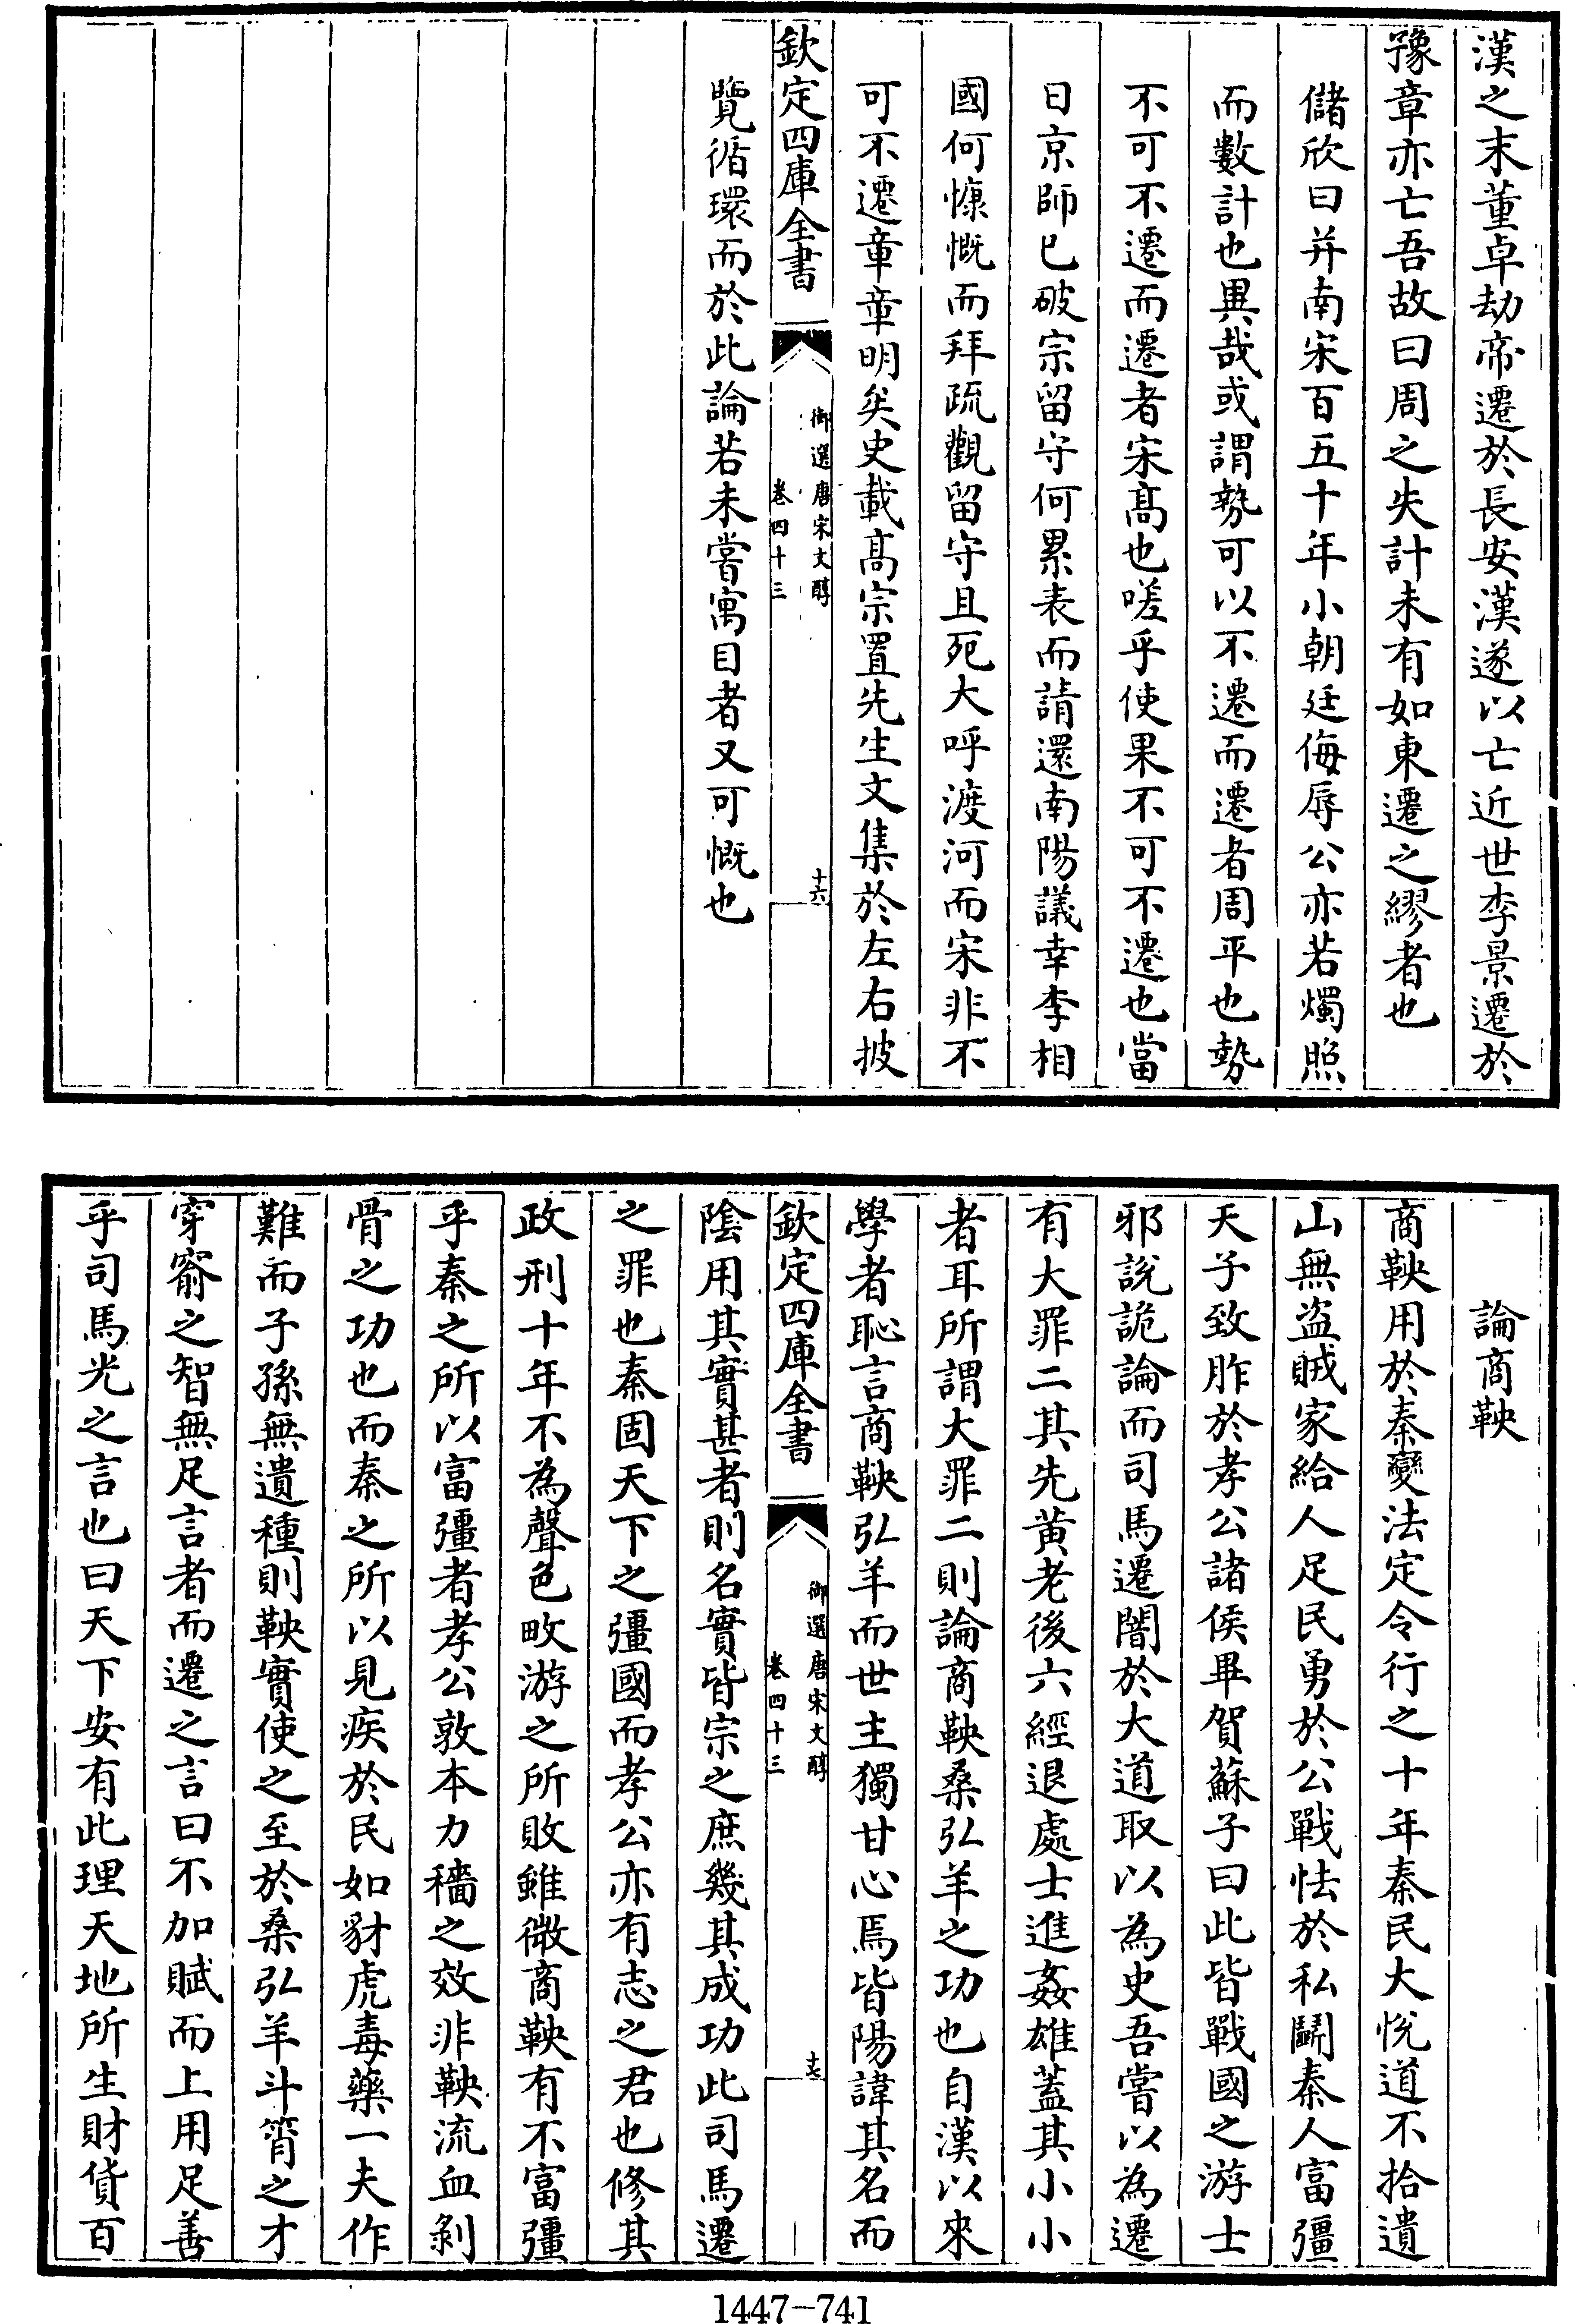 漢之末董卓劫帝遷於長安漢遂以亡近世李景遷於
豫章亦亡吾故曰周之失計未有如東遷之繆者也
儲欣曰并南宋百五十年小朝廷侮辱公亦若燭照
而數計也異哉或謂勢可以不遷而遷者周平也勢
不可不遷而遷者宋髙也嗟乎使果不可不遷也當
日京師已破宗留守何累表而請還南陽議幸李相
國何慷慨而拜疏觀留守且死大呼渡河而宋非不
可不遷章章明矣史載髙宗置先生文集於左右披
欽定四庫全書
御選唐宋文醇
卷四十三
十六
覽循環而於此論若未嘗寓目者又可慨也
論商鞅
商鞅用於秦變法定令行之十年秦民大悅道不拾遺
山無盜賊家給人足民勇於公戰怯於私鬭秦人富彊
天子致胙於孝公諸侯畢賀蘇子曰此皆戰國之游士
邪說詭論而司馬遷闇於大道取以為史吾嘗以為遷
有大罪二其先黃老後六經退處士進姦雄蓋其小小
者耳所謂大罪二則論商鞅桑弘羊之功也自漢以來
學者恥言商鞅弘羊而世主獨甘心焉皆陽諱其名而
欽定四庫全書
御選唐宋文醇
卷四十三
十七
陰用其實甚者則名實皆宗之庶幾其成功此司馬遷
之罪也秦固天下之彊國而孝公亦有志之君也修其
政刑十年不為聲色畋游之所敗雖微商鞅有不富彊
乎秦之所以富彊者孝公敦本力穡之效非鞅流血剝
骨之功也而秦之所以見疾於民如豺虎毒藥一夫作
難而子孫無遺種則鞅實使之至於桑弘羊斗筲之才
穿窬之智無足言者而遷之言曰不加賦而上用足善
乎司馬光之言也曰天下安有此理天地所生財貨百
1447-741